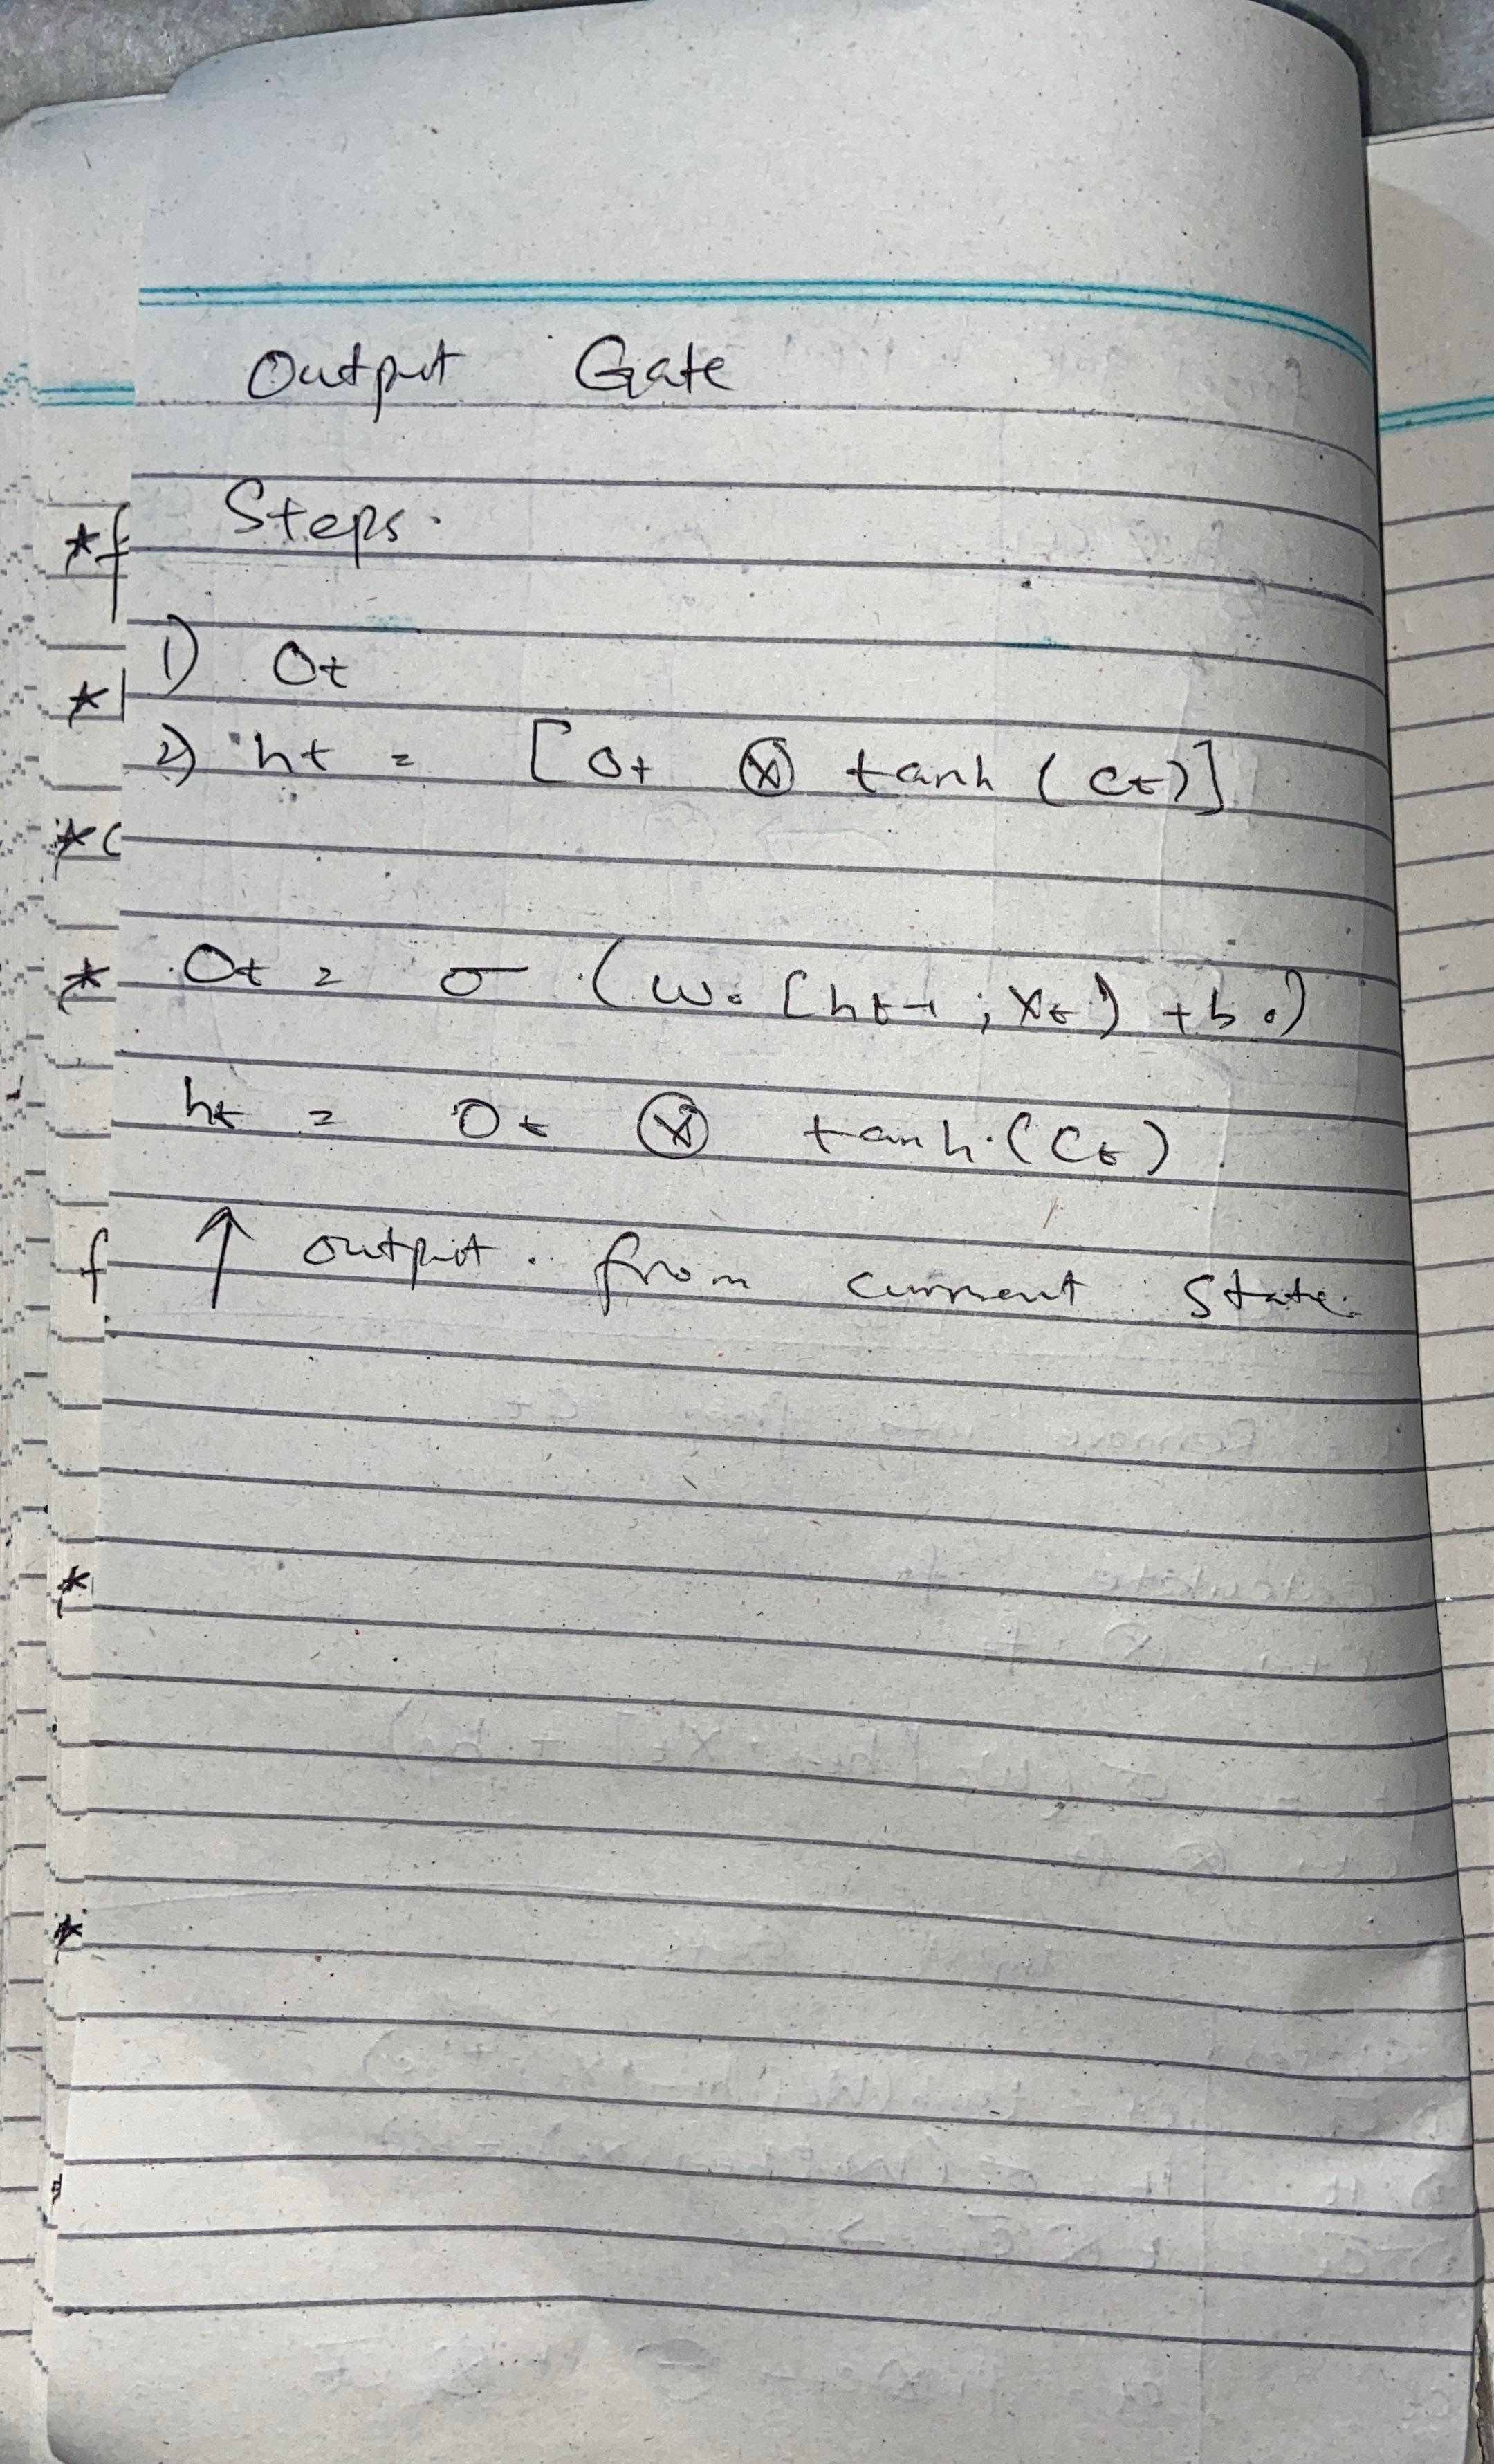 Output Gate
Steps.
1) Ot
2) ht = [Ot ⊗ tanh (Ct)]
Ot = σ (Wo [ht-1 ; Xt] + bo)
ht = Ot ⊗ tanh (Ct)
↑ output from current state.